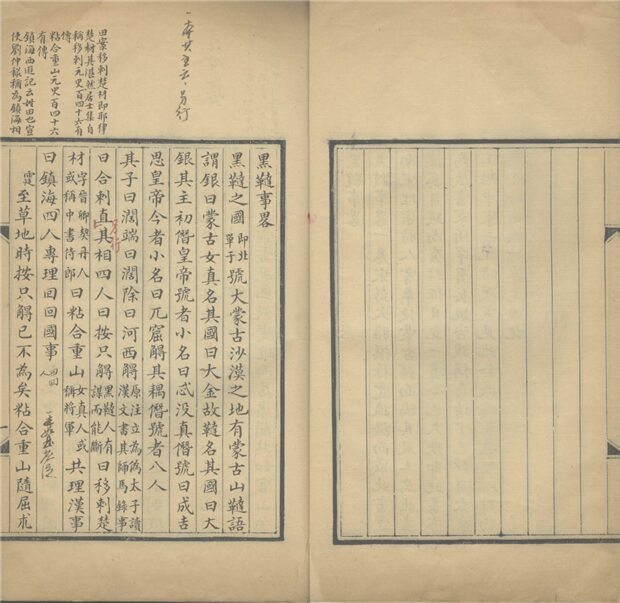 一本其五六另行
田案移剌楚材即耶律
楚材其湛然居士集自
稱移剌元史百四十六有
傳
粘合重山元史百四十六
有傳
鎮海西遊記云姓田也宣
使劉仲祿稱為鎮海相
黑韃事畧
黑韃之國即北單于號大蒙古沙漠之地有蒙古山韃語
謂銀曰蒙古女真名其國曰大金故韃名其國曰大
銀其主初僭皇帝號者小名曰忒没真僭號曰成吉
思皇帝今者小名曰兀窟觧其耦僭號者八人
其子曰濶端曰濶除曰河西觧原注立為偽太子讀漢文書其師馬錄事
曰合剌直其相四人曰按只觧黑韃人有謀而能斷曰移剌楚
材字晉卿契丹人或稱中書侍郎曰粘合重山女真人或稱將軍共理漢事
曰鎮海回回人專理回回國事
霆至草地時按只觧已不為矣粘合重山隨屈朮